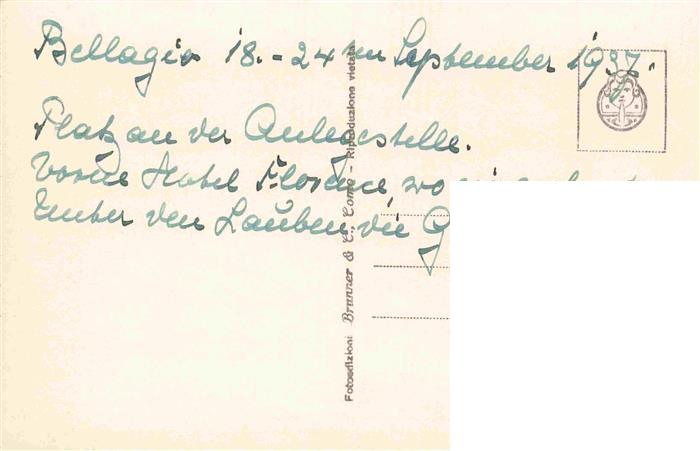 Bellagio 18.-24ten September 1937.
Platz an der Anlegestelle.
Vorne Hotel Florence, wo
Unter den Lauben die
Fotoedizioni Brunner & C., Como - Riproduzione vietata